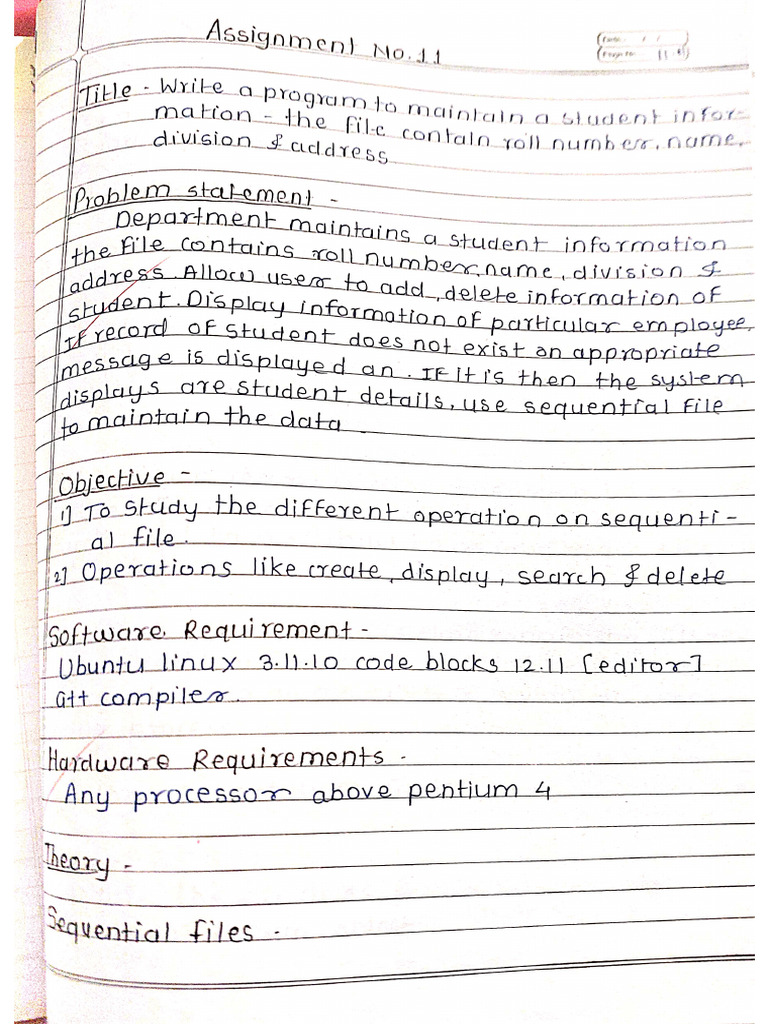 Assignment No. 11
Date / /
Page No 11.
Title - Write a program to maintain a student infor-
mation - the file contain roll number, name,
division & address
Problem statement -
Department maintains a student information
the file contains roll number, name, division &
address. Allow user to add, delete information of
student. Display information of particular employee,
If record of student does not exist an appropriate
message is displayed an. If it is then the system
displays are student details, use sequential file
to maintain the data.
Objective -
1] To study the different operation on sequenti-
al file.
2] Operations like create, display, search & delete
Software Requirement -
Ubuntu linux 3.11.10 code blocks 12.11 [editor]
G++ compiler.
Hardware Requirements -
Any processor above pentium 4
Theory -
Sequential files -